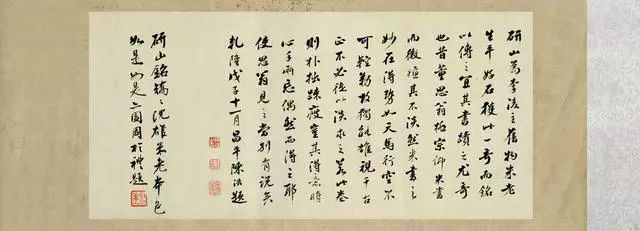 研山為李後主舊物米老
生平好石獲此一奇而銘
以傳之宜其書蹟之尤奇
也昔董思翁極宗仰米書
而微嫌其不淡然米書之
妙在得勢如天馬行空不
可控勒故獨能雄視千古
正不必徒以淡求之若此卷
則朴拙疎瘦豈其得意時
心手兩忘偶然而得之耶
使思翁見之當別有說矣
乾隆戊子十一月昌平陳浩題
研山銘矯矯沈雄米老本色
如是如是立周於禮題